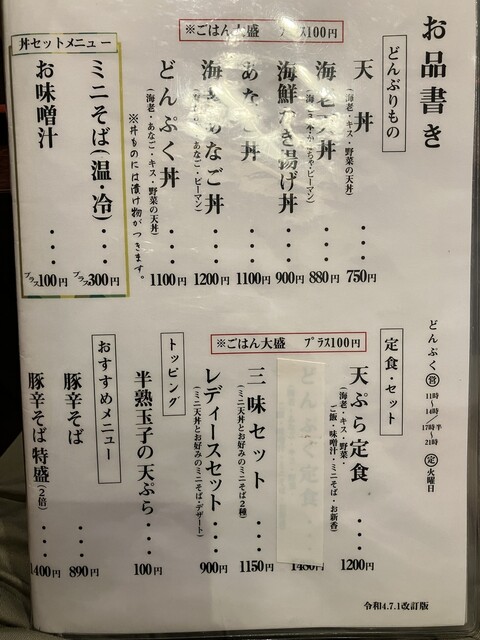 お品書き
どんぶりもの
※ごはん大盛 プラス100円
天丼・・・・750円
(海老・キス・野菜の天丼)
海老天丼・・・880円
海鮮かき揚げ丼・・・900円
あなご丼・・・・1100円
海老あなご丼・・・1200円
どんぷく丼・・・・1100円
(海老・あなご・キス・野菜の天丼)
※丼ものには漬け物がつきます。
丼セットメニュー
ミニそば(温・冷)・・・プラス300円
お味噌汁・・・・プラス100円
どんぷく
営
11時
〜
14時
17時半
〜
21時
定
火曜日
定食・セット
※ごはん大盛 プラス100円
天ぷら定食・・・・1200円
(海老・キス・野菜・
ご飯・味噌汁・ミニそば・お新香)
どんぷく定食
三味セット・・・・1150円
(ミニ天丼とお好みのミニそば2種)
レディースセット・・・・900円
(ミニ天丼とお好みのミニそば・デザート)
トッピング
半熟玉子の天ぷら・・・・100円
おすすめメニュー
豚辛そば・・・・890円
豚辛そば 特盛(2倍)・・・・1400円
令和4.7.1改訂版